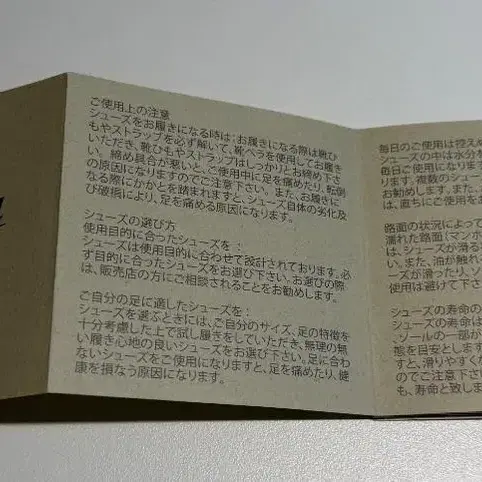 ご使用上の注意
シューズをお履きになる時は：お履きになる際は靴ひ
もやストラップを必ず解いて、靴ベラを使用してお履き
いただき、靴ひもやストラップはしっかりとお締め下さ
い。締め具合が悪いとご使用中に足を痛めたり、転倒
の原因になりますのでご注意下さい。また、お履きに
なる際にかかとを踏まれますと、シューズ自体の劣化及
び破損により、足を痛める原因になります。
シューズの選び方
使用目的に合ったシューズを：
シューズは使用目的に合わせて設計されております。必
ず目的に合ったシューズをお選び下さい。お選びの際
は、販売店の方にご相談されることをお勧めします。
ご自分の足に適したシューズを：
シューズを選ぶときには、ご自分のサイズ、足の特徴を
十分考慮した上で試し履きをしていただき、無理の無
い履き心地の良いシューズをお選び下さい。足に合わ
ないシューズをご使用になりますと、足を痛めたり、健
康を損なう原因になります。
毎日のご使用は控えめ
シューズの中は水分を
毎日ご使用になります
ります。複数のシュー
お勧めします。また、
は、直ちにご使用をお
路面の状況によって
濡れた路面（マンホ
は、シューズが滑る
い。また、油が触れ
ーズが滑ったり、ソ
使用は避けて下さ
シューズの寿命の
シューズの寿命は
、ソールの一部が
態を目安とします
すと、滑りやすくな
のでご注意下さ
も、寿命と致しま